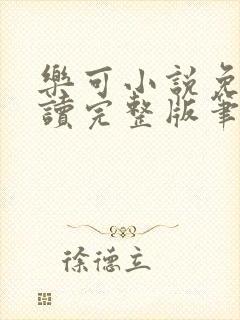 樂可小說免
讀完整版筆
徐德立